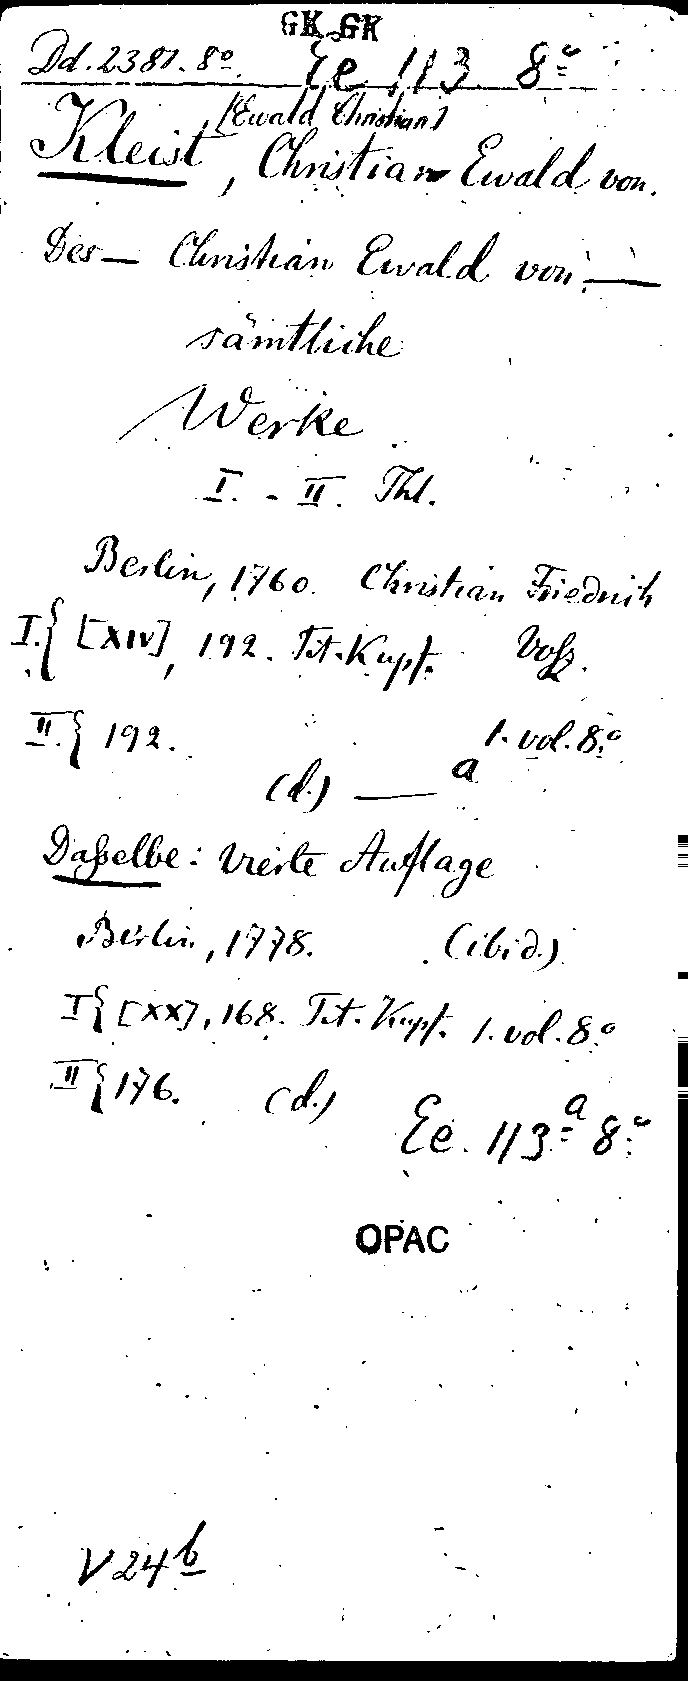 GK GK
Dd. 2381. 8º. Ee 113 8º
[Ewald Christian]
Kleist, Christian Ewald von.
Des — Christian Ewald von —
sämtliche
Werke
I. - II. Thl.
Berlin, 1760. Christian Friedrich
I.{ [XIV], 192. Tit. Kupf. Voß.
II.{ 192. 1. vol. 8.º
(d.) — a
Daßelbe: Vierte Auflage
Berlin, 1778. (ibid.)
I{ [XX], 168. Tit. Kupf. 1. vol. 8.º
II{ 176. (d.)
Ee. 113 a 8.º
OPAC
V 24 b